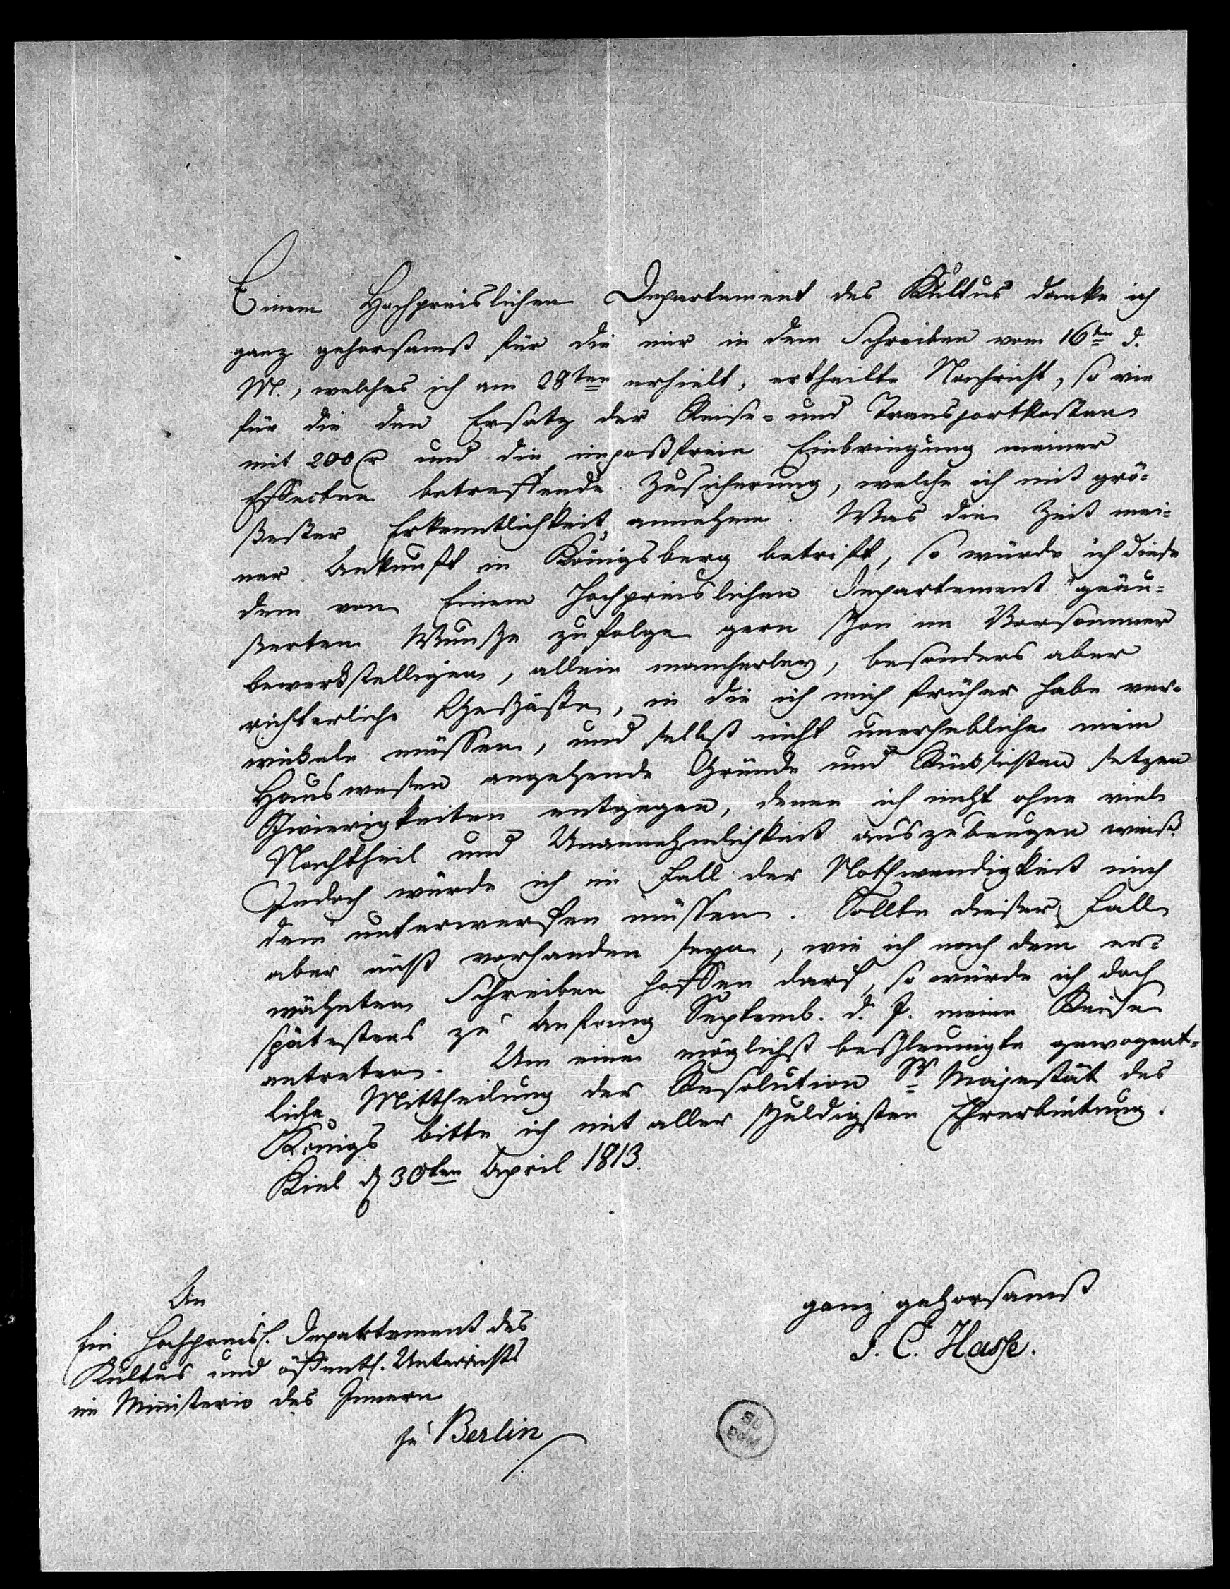 Einem Hochpreislichen Departement des Kultus danke ich
ganz gehorsamst für die mir in dem Schreiben vom 16ten d.
M., welches ich am 28ten erhielt, ertheilte Nachricht, so wie
für die den Ersatz der Reise- und Transportkosten
mit 200 und die impostfreie Einbringung meiner
Effecten betreffende Zusicherung, welche ich mit grö-
ßester Erkenntlichkeit annehme. Was die Zeit mei-
ner Ankunft in Königsberg betrift, so würde ich diese
dem von Einem Hochpreislichen Departement geäu-
ßerten Wunsche zufolge gern schon im Vorsommer
bewerkstelligen, allein mancherley, besonders aber
richterliche Geschäfte, in die ich mich früher habe ver-
wickeln müssen, und selbst nicht unerhebliche mein
Hauswesen angehende Gründe und Rücksichten setzen
Schwierigkeiten entgegen, denen ich nicht ohne viele
Nachtheil und Unannehmlichkeit auszubeugen weiß
Jedoch würde ich im Fall der Nothwendigkeit mich
dem unterwerfen müssen. Sollte dieser Fall
aber nicht vorhanden seyn, wie ich nach dem er-
wähnten Schreiben hoffen darf, so würde ich doch
spätestens zu Anfang Septemb. d. J. meine Reise
antreten. Um eine möglichst beschleunigte gewogent-
liche Mittheilung der Resolution Sr Majestät des
Königs bitte ich mit aller schuldigsten Ehrerbietung.
Kiel d 30ten April 1813.
ganz gehorsamst
J. C. Hasse.
An
Ein Hochpreisl. Departement des
Kultus und öffentl. Unterrichts
im Ministerio des Innern
zu Berlin